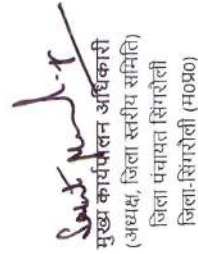 मुख्य कार्यपालन अधिकारी
(अध्यक्ष, जिला स्तरीय समिति)
जिला पंचायत सिंगरौली
जिला-सिंगरौली (म0प्र0)